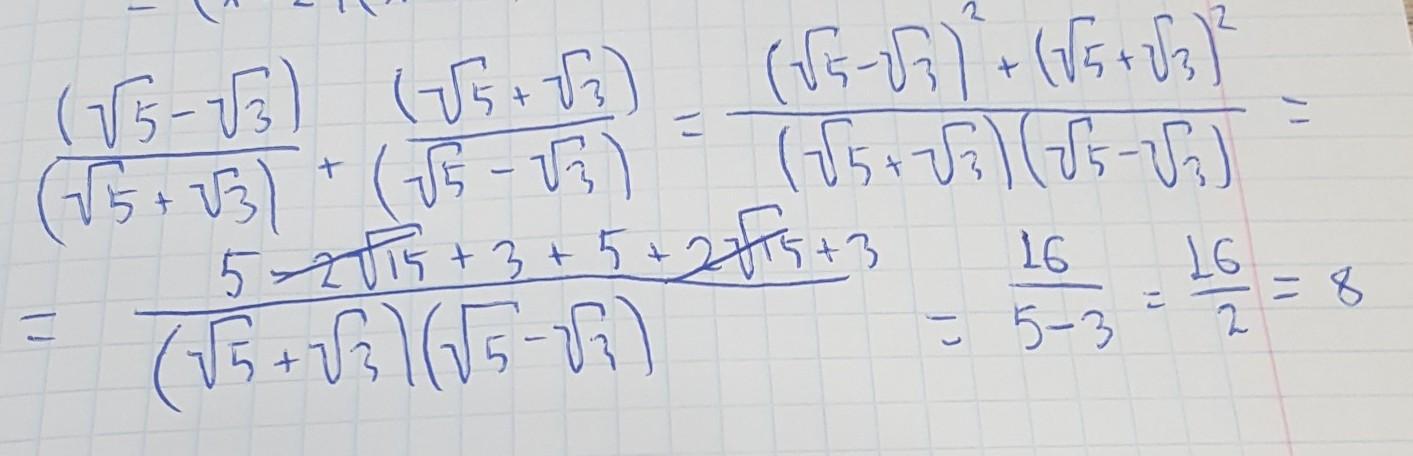 (√5 - √3)/(√5 + √3) + (√5 + √3)/(√5 - √3) = ((√5 - √3)² + (√5 + √3)²)/((√5 + √3)(√5 - √3)) =
= (5 - 2√15 + 3 + 5 + 2√15 + 3)/((√5 + √3)(√5 - √3)) = 16/(5 - 3) = 16/2 = 8